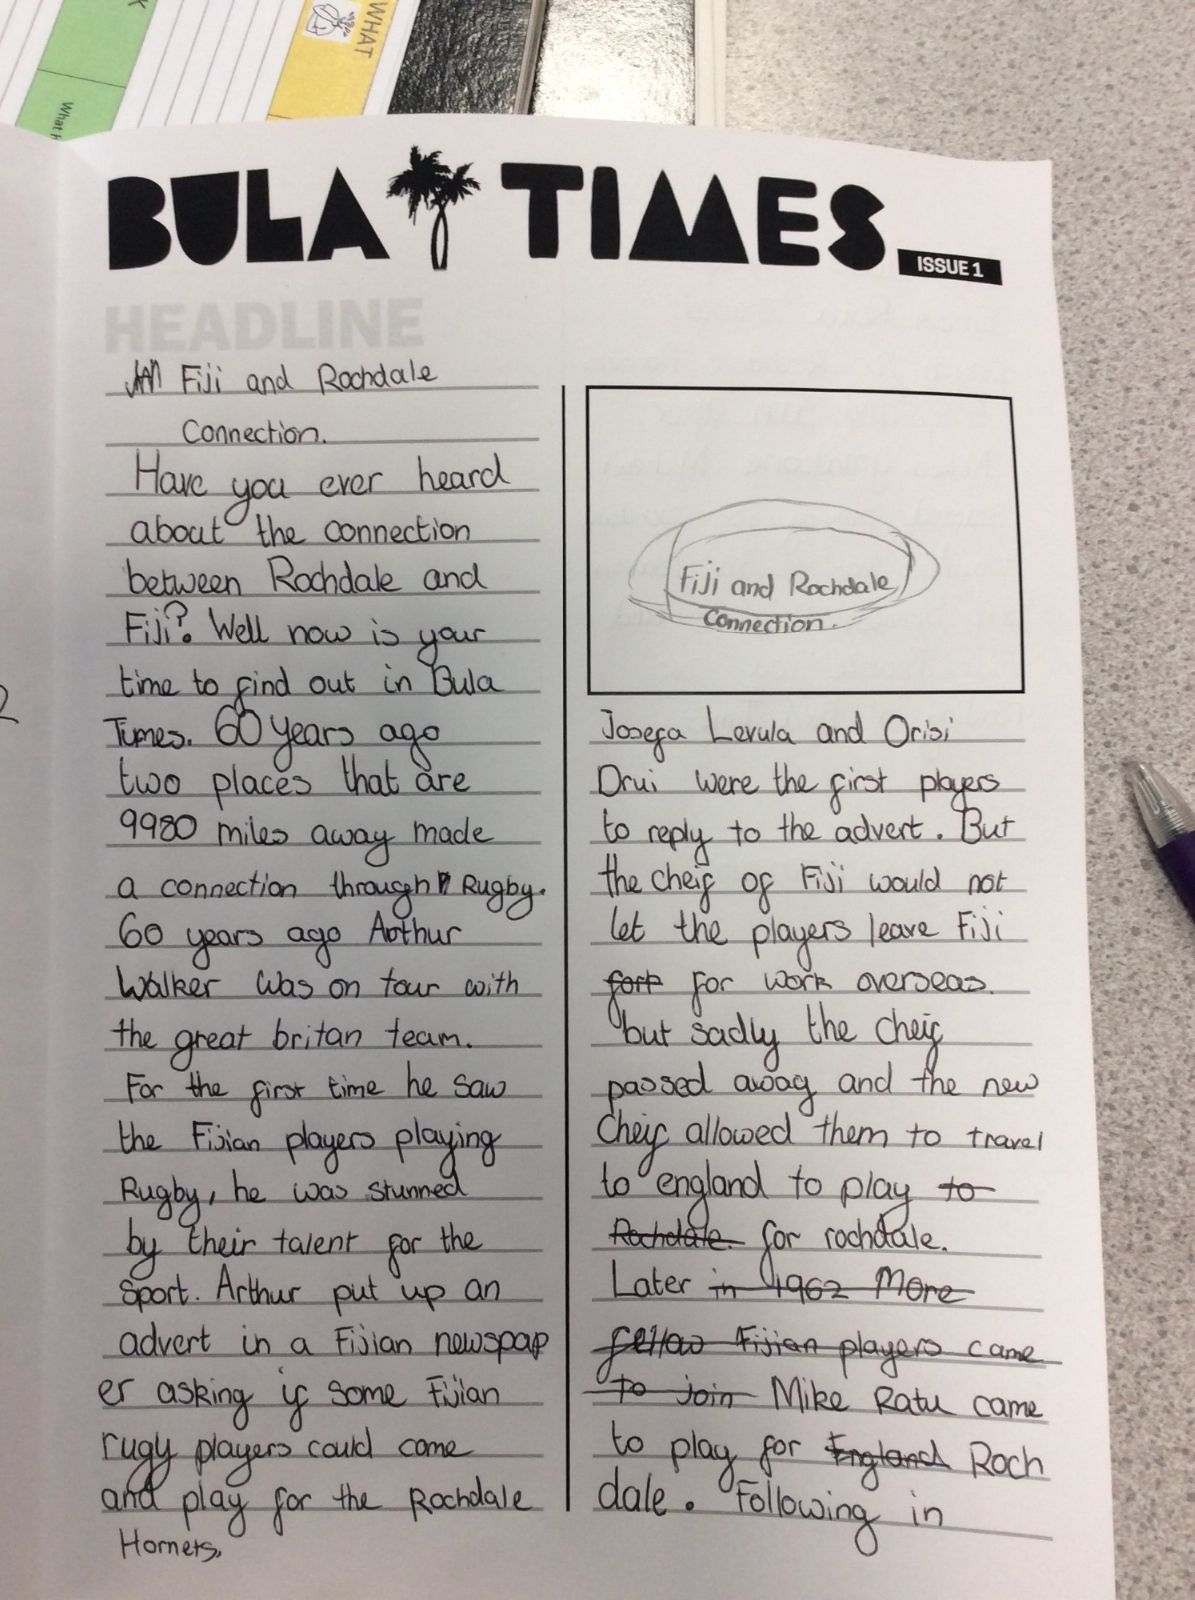 WHAT
What H
BULA TIMES
ISSUE 1
HEADLINE
Fiji and Rochdale
Connection.
Have you ever heard
about the connection
between Rochdale and
Fiji? Well now is your
time to find out in Bula
Times. 60 years ago
two places that are
9980 miles away made
a connection through Rugby.
60 years ago Arthur
Walker was on tour with
the great britan team.
For the first time he saw
the Fijian players playing
Rugby, he was stunned
by their talent for the
Sport. Arthur put up an
advert in a Fijian newspap
er asking if some Fijian
rugy players could come
and play for the Rochdale
Hornets.
Fiji and Rochdale
Connection.
Josefa Levula and Orisi
Drui were the first players
to reply to the advert. But
the cheif of Fiji would not
let the players leave Fiji
for work overseas.
but sadly the cheif
passed away and the new
cheif allowed them to travel
to england to play to
Rochdale. for rochdale.
Later in 1962 More
fellow Fijian players came
to join Mike Ratu came
to play for England Roch
dale. Following in